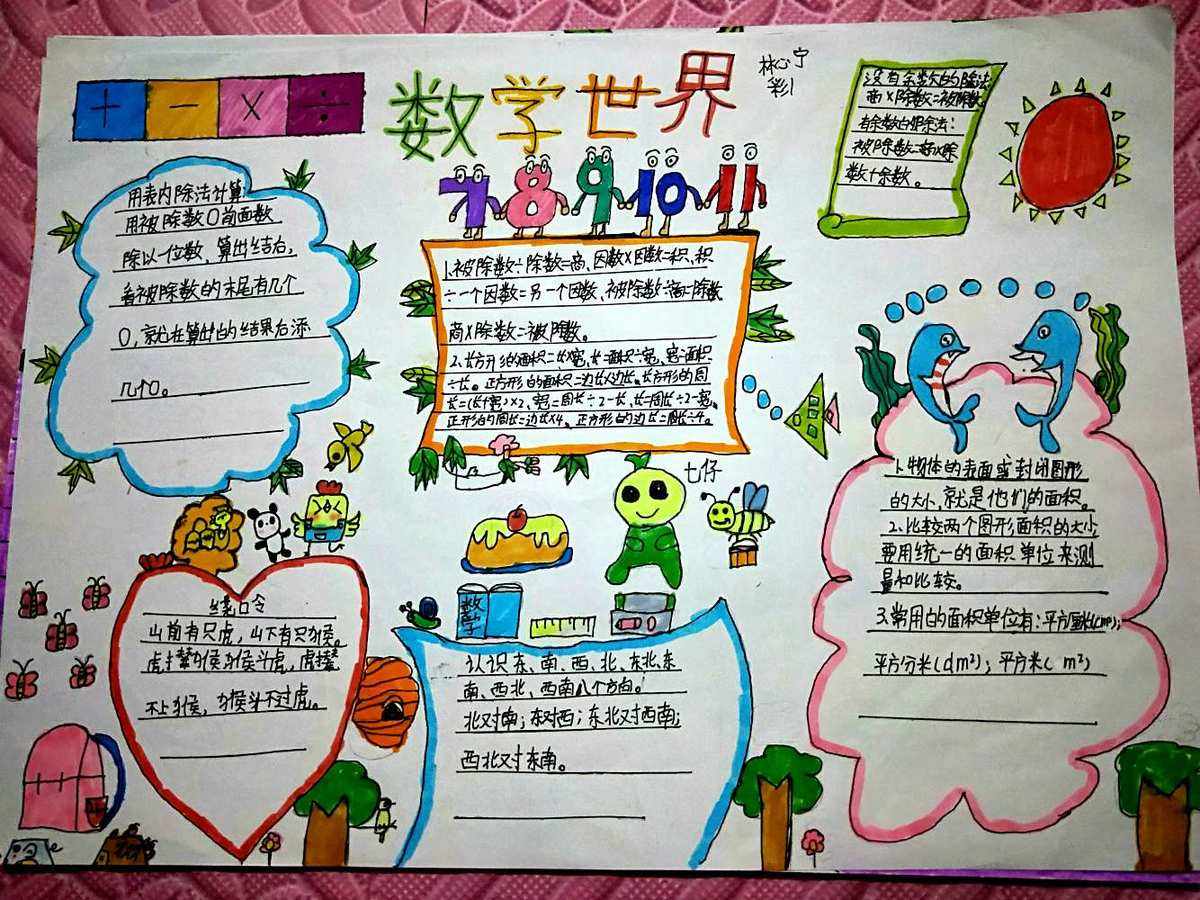 + - × ÷
数学世界
林心宁
彩1
7 8 9 10 11
没有余数的除法
商×除数=被除数
有余数的除法:
被除数=商×除
数+余数。
用表内除法计算:
用被除数0前面数
除以一位数,算出结后,
看被除数的末尾有几个
0,就在算出的结果后添
几个0。
1.被除数÷除数=商、因数×因数=积、积
÷一个因数=另一个因数、被除数÷商=除数
商×除数=被除数。
2.长方形的面积=长×宽、长=面积÷宽、宽=面积
÷长。正方形的面积=边长×边长。长方形的周
长=(长+宽)×2、宽=周长÷2-长、长=周长÷2-宽、
正形的周长=边长×4、正方形的边长=周长÷4。
七仔
1.物体的表面或封闭图形
的大小,就是他们的面积。
2.比较两个图形面积的大小,
要用统一的面积单位来测
量和比较。
3.常用的面积单位有:平方厘米(cm²);
平方分米(dm²);平方米(m²)
绕口令
山前有只虎,山下有只猴。
虎撵猴猴斗虎,虎撵
不上猴,猴斗不过虎。
数学
认识东、南、西、北、东北、东
南、西北、西南八个方向。
北对南;东对西;东北对西南;
西北对东南。